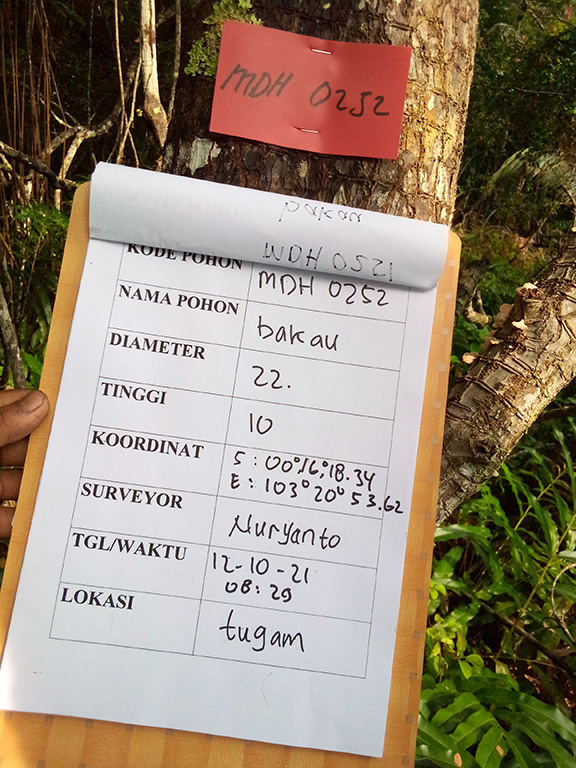 MDH 0252
pakau
MDH 0521
KODE POHON MDH 0252
NAMA POHON bakau
DIAMETER 22.
TINGGI 10
KOORDINAT S : 00°16°18.34
E : 103°20°53.62
SURVEYOR Nuryanto
TGL/WAKTU 12-10-21
08:29
LOKASI tugam